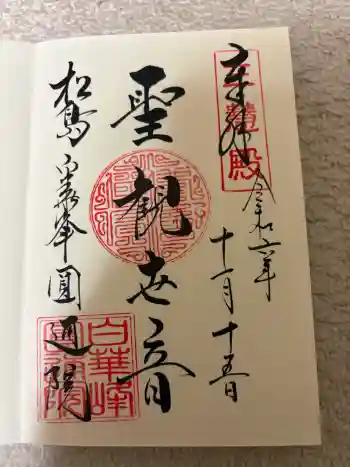 奉拝
三慧殿
令和六年
十一月十五日
聖観世音
松島白華峰圓通院
白華峰